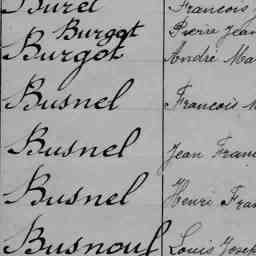 Buret François
Burgot Pierre Jean
Burgot André Ma
Busnel François M
Busnel Jean Franç
Busnel Henri Fran
Busnouf Louis Josep